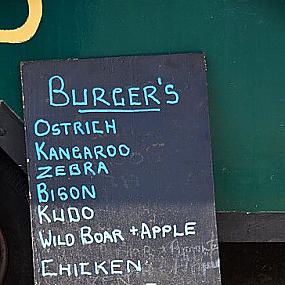 BURGER'S
OSTRICH
KANGAROO
ZEBRA
BISON
KUDO
WILD BOAR + APPLE
CHICKEN